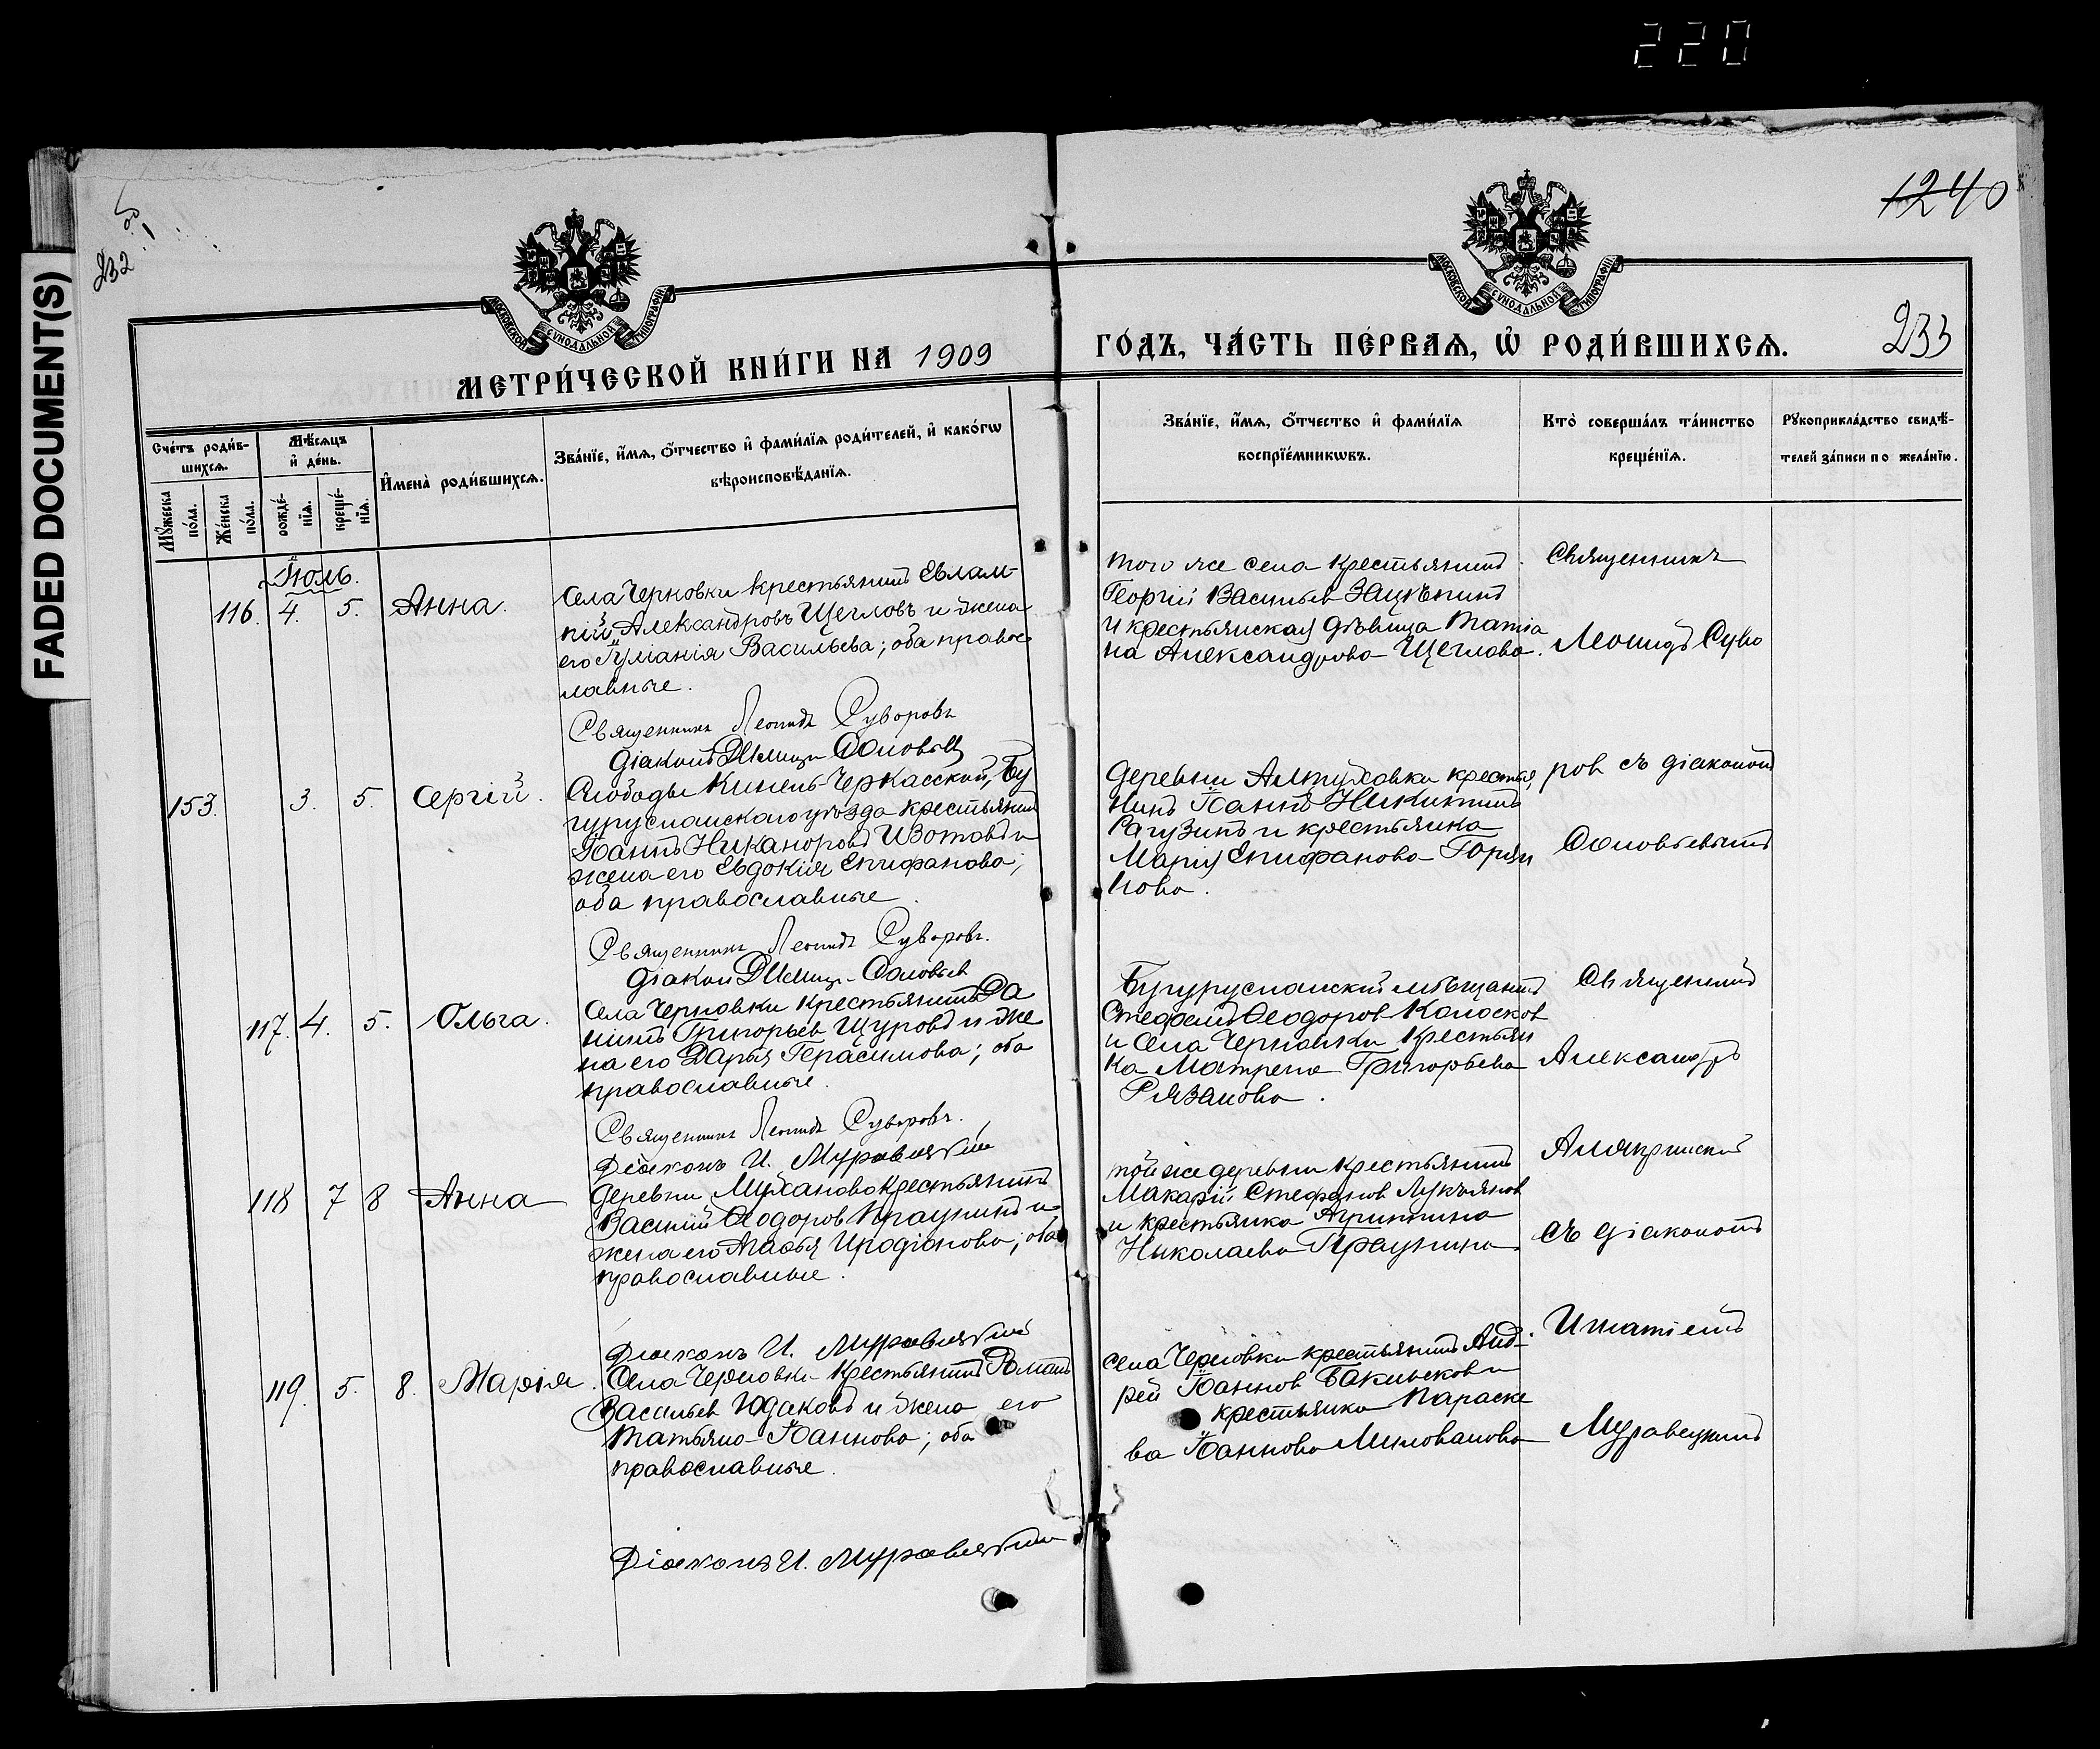 220
FADED DOCUMENT(S)
232
1240
МОСКОВСКОЙ СѴНОДАЛЬНОЙ ТИПОГРАФІИ
МОСКОВСКОЙ СѴНОДАЛЬНОЙ ТИПОГРАФІИ
МЕТРИ́ЧЕСКОЙ КНИ́ГИ НА 1909
ГО́ДЪ, ЧА́СТЬ ПЕ́РВАѦ, Ѡ҆ РОДИ́ВШИХСѦ.
233
Сче́тъ роди́в-
шихсѧ.
Мꙋ́жеска
по́ла.
Же́нска
по́ла.
Мѣ́сѧцъ
и҆ де́нь.
рожде́-
нїѧ.
креще́-
нїѧ.
И҆мена̀ роди́вшихсѧ.
Зва́нїе, и҆́мѧ, ѻ҆́тчество и҆ фами́лїѧ роди́телей, и҆ како́гѡ
вѣроисповѣ́данїѧ.
Зва́нїе, и҆́мѧ, ѻ҆́тчество и҆ фами́лїѧ
воспрїе́мникѡвъ.
Кто̀ соверша́лъ та́инство
креще́нїѧ.
Рꙋкоприкла́дство свидѣ́-
телей за́писи по жела́нїю.
Іюль.
116. 4. 5. Анна.
Села Черновки крестьянинъ Евлам-
пій Александровъ Щегловъ и жена
его Іуліанія Васильева; оба правос
лавные.
Священникъ Леонидъ Суворовъ
діаконъ Димитр. Соловьев
того же села крестьянинъ
Георгій Васильев Зацѣпинъ
и крестьянская дѣвица Татіа
на Александрова Щеглова.
Священникъ
Леонидъ Суво
153. 3. 5. Сергій.
Слободы Кинель-Черкасской, Бу
гурусланскаго уѣзда крестьянинъ
Іоаннъ Никаноровъ Изотовъ и
жена его Евдокія Епифанова;
оба православные.
Священникъ Леонидъ Суворовъ.
діакон Димитр. Соловьев
деревни Алтуховки крестья
нинъ Іоаннъ Никитинъ
Рагузинъ и крестьянка
Марія Епифанова Горян
нова.
ров съ діаконом
Соловьевымъ
117. 4. 5. Ольга.
Села Черновки крестьянинъ Да
ніилъ Григорьев Щуровъ и же
на его Дарья Герасимова; оба
православные.
Священникъ Леонидъ Суворовъ.
Діаконъ И. Муравецкій
Бугурусланский мѣщанинъ
Стефанъ Ѳеодоров Колосков
и села Черновки крестьян
ка Матрена Григорьева
Рязанова.
Священникъ
Александръ
118 7 8 Анна
деревни Муханово крестьянинъ
Василій Ѳеодоров Праунинъ и
жена его Агаѳья Иродіонова; оба
православные.
Діаконъ И. Муравецкій
той же деревни крестьянинъ
Макарій Стефанов Лукьянов
и крестьянка Агриппина
Николаева Праунина
Алякринский
съ діаконом
119. 5. 8. Марія.
Села Черновки крестьянинъ Романъ
Васильев Юдаковъ и жена его
Татьяна Іоаннова; оба
православные.
Діаконъ И. Муравецкій
села Черновки крестьянинъ Анд-
рей Іоаннов Бакинсков и
крестьянка Параске
ва Іоаннова Милованова
Игнатіемъ
Муравецкимъ